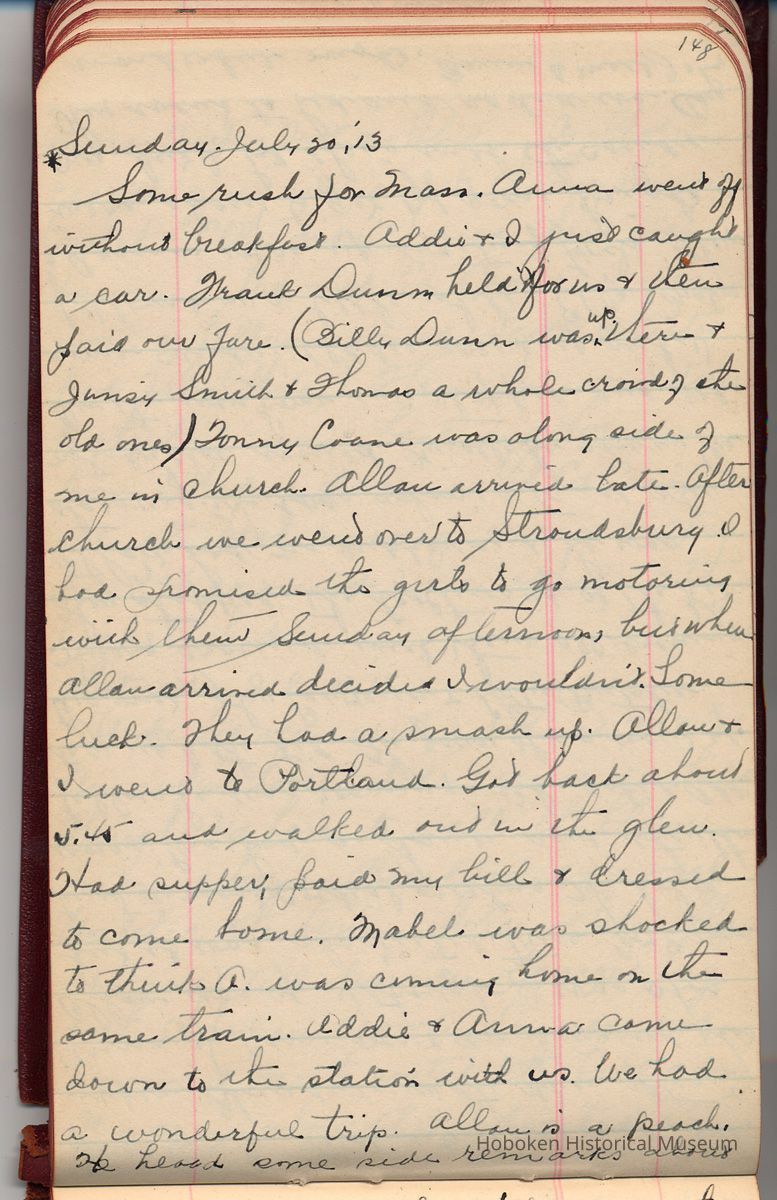 148
*Sunday. July 20, '13
Some rush for Mass. Anna went off
without breakfast. Addie & I just caught
a car. Frank Dunn held for us & then
paid our fare. (Billy Dunn was up there &
Smith & Thomas a whole crowd of the
old ones) Tommy Coane was along side of
me in church. Allan arrived late. After
church we went over to Stroudsburg. I
had promised the girls to go motoring
with them Sunday afternoon, but when
Allan arrived decided I wouldn't. Some
luck. They had a smash up. Allan &
I went to Portland. Got back about
5.45 and walked out in the glen.
Had supper, paid my bill & dressed
to come home. Mabel was shocked
to think A. was coming home on the
same train. Addie & Anna came
down to the station with us. We had
a wonderful trip. Allan is a peach.
He heard some side remarks about
Hoboken Historical Museum